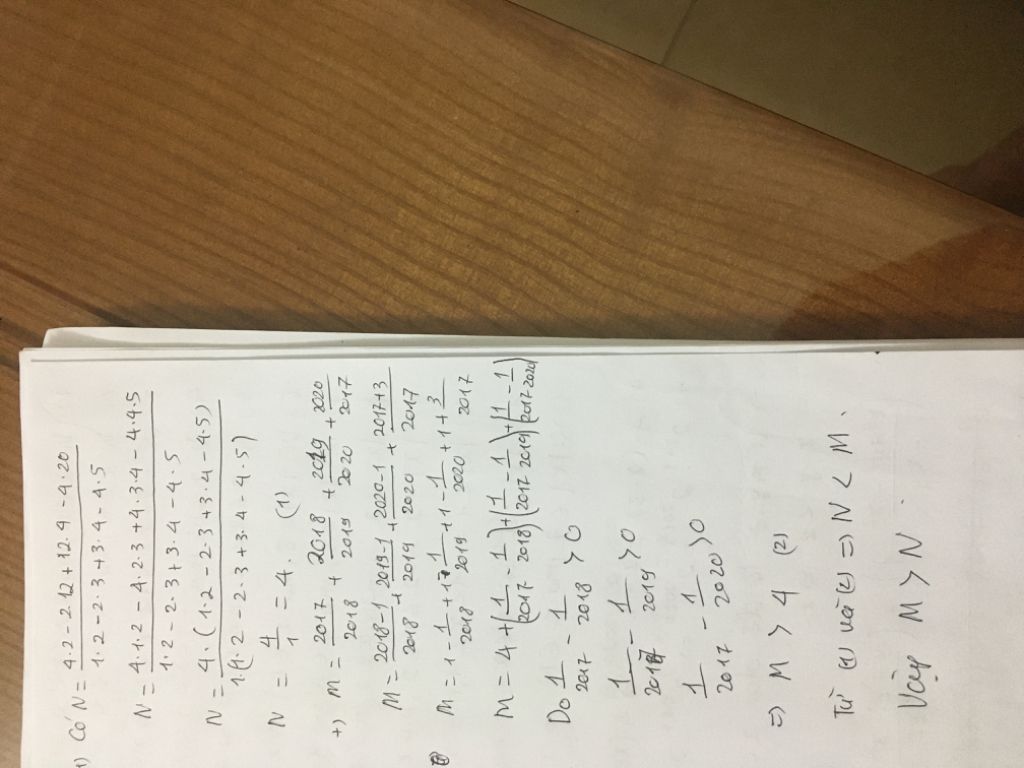 1) Có N = \frac{4.2 - 2.12 + 12.4 - 4.20}{1.2 - 2.3 + 3.4 - 4.5}
N = \frac{4.1.2 - 4.2.3 + 4.3.4 - 4.4.5}{1.2 - 2.3 + 3.4 - 4.5}
N = \frac{4.(1.2 - 2.3 + 3.4 - 4.5)}{1.(1.2 - 2.3 + 3.4 - 4.5)}
N = \frac{4}{1} = 4. (1)
+) M = \frac{2017}{2018} + \frac{2018}{2019} + \frac{2019}{2020} + \frac{2020}{2017}
M = \frac{2018-1}{2018} + \frac{2019-1}{2019} + \frac{2020-1}{2020} + \frac{2017+3}{2017}
M = 1 - \frac{1}{2018} + 1 - \frac{1}{2019} + 1 - \frac{1}{2020} + 1 + \frac{3}{2017}
M = 4 + (\frac{1}{2017} - \frac{1}{2018}) + (\frac{1}{2017} - \frac{1}{2019}) + (\frac{1}{2017} - \frac{1}{2020})
Do \frac{1}{2017} - \frac{1}{2018} > 0
\frac{1}{2017} - \frac{1}{2019} > 0
\frac{1}{2017} - \frac{1}{2020} > 0
=> M > 4 (2)
Từ (1) và (2) => N < M.
Vậy M > N.